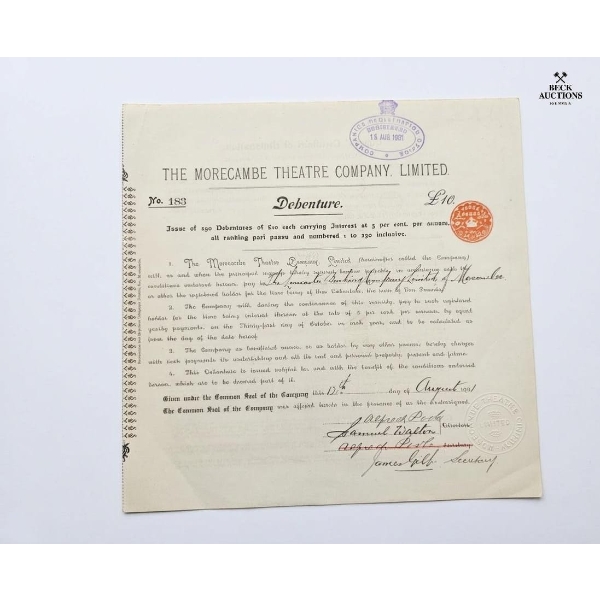 BECK
AUCTIONS
REGISTERED
15 AUG 1901
THE MORECAMBE THEATRE COMPANY, LIMITED.
No. 183 Debenture. £10.
Issue of 290 Debentures of £10 each carrying Interest at 5 per cent. per annum,
all ranking pari passu and numbered 1 to 290 inclusive.
1. The Morecambe Theatre Company, Limited (hereinafter called the Company)
will, as and when the principal
conditions endorsed hereon, pay to The Lancaster Banking Company Limited of Morecambe
or other the registered holder for the time being of this Debenture, the sum of Ten Pounds.
2. The Company will, during the continuance of this security, pay to such registered
holder for the time being interest thereon at the rate of 5 per cent. per annum, by equal
yearly payments, on the Thirty-first day of October in each year, and to be calculated as
from the day of the date hereof.
3. The Company as beneficial owner, or as holder by any other powers, hereby charges
with such payments its undertaking and all its real and personal property, present and future.
4. This Debenture is issued subject to, and with the benefit of the conditions endorsed
hereon, which are to be deemed part of it.
Given under the Common Seal of the Company this 12th day of August 1901
The Common Seal of the Company was affixed hereto in the presence of the undersigned,
Alfred
Samuel Walton Directors.
Alfred Secretary
James Secretary